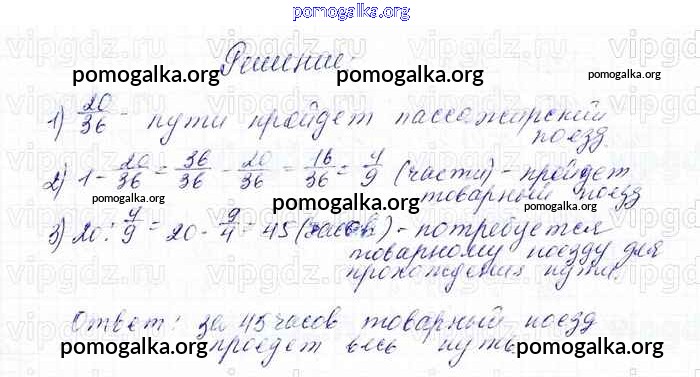 pomogalka.org
Решение:
pomogalka.org pomogalka.org pomogalka.org
1) 20/36 - пути пройдет пассажирский
поезд.
2) 1 - 20/36 = 36/36 - 20/36 = 16/36 = 4/9 (части) - пройдет
товарный поезд
pomogalka.org pomogalka.org
3) 20 : 4/9 = 20 · 9/4 = 45 (часов) - потребуется
товарному поезду для
прохождения пути.
Ответ: за 45 часов товарный поезд
проедет весь путь.
pomogalka.org pomogalka.org pomogalka.org